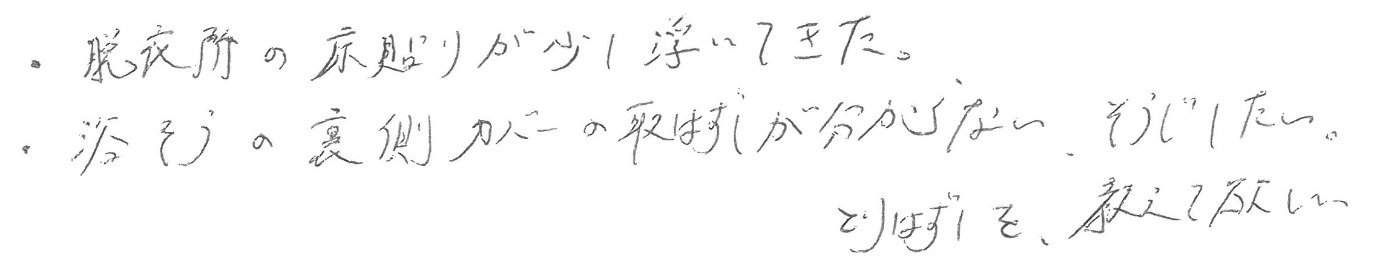 ・脱衣所の床貼りが少し浮いてきた。
・浴そうの裏側カバーの取はずしが分からない、そうじしたい。
とりはずしを、教えて欲しい